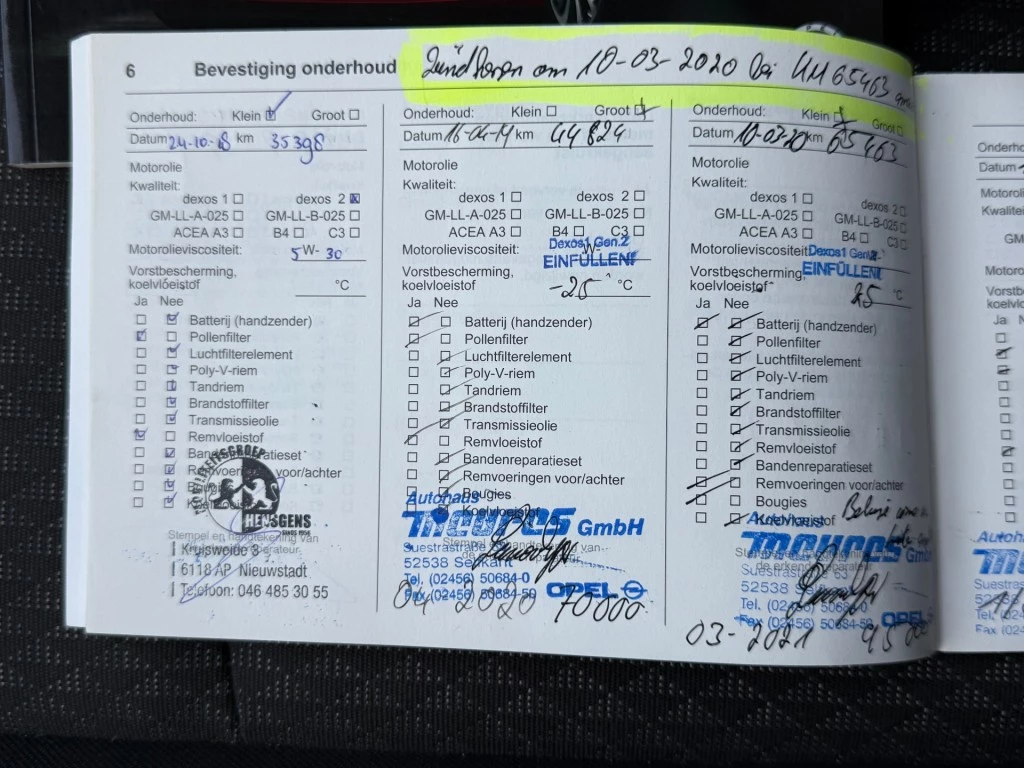 6 Bevestiging onderhoud
am 10-03-2020 bei KM 65463
Onderhoud: Klein Groot
Datum 24-10-18 km 35398
Motorolie
Kwaliteit:
dexos 1 dexos 2
GM-LL-A-025 GM-LL-B-025
ACEA A3 B4 C3
Motorolieviscositeit: 5W-30
Vorstbescherming,
koelvloeistof °C
Ja Nee
Batterij (handzender)
Pollenfilter
Luchtfilterelement
Poly-V-riem
Tandriem
Brandstoffilter
Transmissieolie
Remvloeistof
Bandenreparatieset
Remvoeringen voor/achter
Bougies
HENSGENS
SINCE 1956
Stempel en handtekening van
Kruisweide 3
6118 AP Nieuwstadt
Telefoon: 046 485 30 55
Onderhoud: Klein Groot
Datum 16-04-19 km 44824
Motorolie
Kwaliteit:
dexos 1 dexos 2
GM-LL-A-025 GM-LL-B-025
ACEA A3 B4 C3
Dexos1 Gen.2
Motorolieviscositeit: W-
EINFÜLLEN!
Vorstbescherming,
koelvloeistof -25 °C
Ja Nee
Batterij (handzender)
Pollenfilter
Luchtfilterelement
Poly-V-riem
Tandriem
Brandstoffilter
Transmissieolie
Remvloeistof
Bandenreparatieset
Remvoeringen voor/achter
Bougies
Koelvloeistof
Autohaus
GmbH
Suestrastraße
52538 Selfkant
Tel. (02456) 50684-0
Fax (02456) 50684-50 OPEL
04 2020 70000
Onderhoud: Klein Groot
Datum 10-03-20 km 65463
Motorolie
Kwaliteit:
dexos 1 dexos 2
GM-LL-A-025 GM-LL-B-025
ACEA A3 B4 C3
Motorolieviscositeit: Dexos1 Gen.2
EINFÜLLEN!
Vorstbescherming,
koelvloeistof 25 °C
Ja Nee
Batterij (handzender)
Pollenfilter
Luchtfilterelement
Poly-V-riem
Tandriem
Brandstoffilter
Transmissieolie
Remvloeistof
Bandenreparatieset
Remvoeringen voor/achter
Bougies
Koelvloeistof
Autohaus
GmbH
de erkende reparateur
Suestrastraße 63
52538
Tel. (02456) 50684-0
Fax (02456) 50684-50 OPEL
03-2021
Autohaus
Suestras
Tel. (02
Fax (024